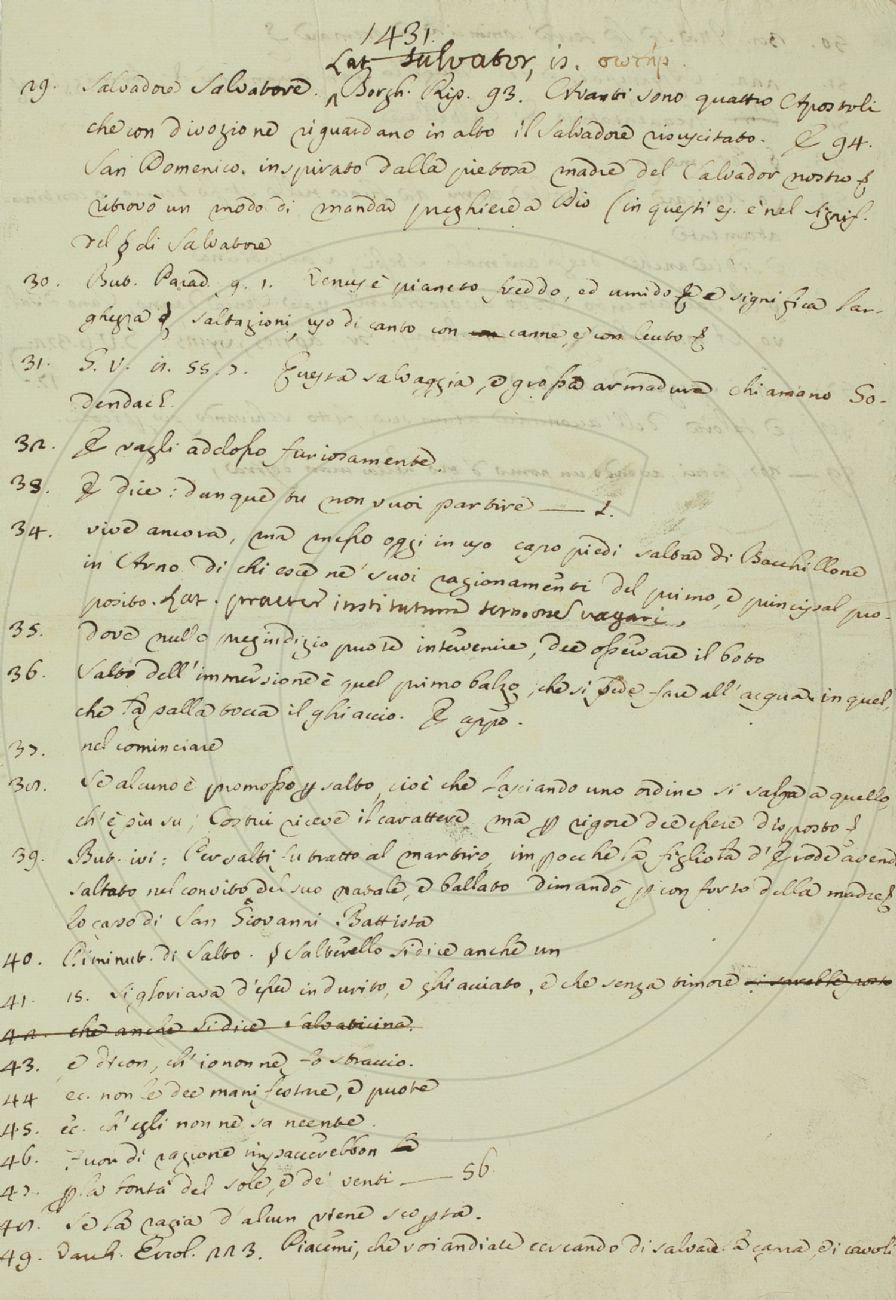 1431.
Lat. salvator, is. σωτήρ.
29. Salvadore Salvatore. Borgh. Rip. 93. Avanti sono quattro Apostoli
che con divozione riguardano in alto il Salvadore risuscitato. E 94.
San Domenico, inspirato dalla pietosa madre del Salvador nostro
ritrovò un modo di mandar preghiere a Dio (in questi es. è nel signif.
del § di Salvatore
30. But. Parad. 9. 1. Venus è pianeto freddo, ed umido e significa lar-
ghezza saltagioni, uso di canto con canne, e con leuto
31. G. V. 8. 55. 7. Questa salvaggia, e grossa armadura chiamano Go-
dendac
32. E vagli addosso furiosamente.
33. E dice: dunque tu non vuoi partire — 1.
34. vive ancora, ma messo oggi in uso capo piedi saltar di Bacchillone
in Arno. di chi esce ne' suoi ragionamenti del primo, e principal pro-
posito. Lat. praeter institutum sermones vagari.
35. dove nullo pregiudizio puote intervenire, dee osservare il boto
36. Salto dell'immersione è quel primo balzo, che si vede fare all'acqua in quel,
che la palla tocca il ghiaccio. E app.
37. nel cominciare
38. Se alcuno è promosso p salto, cioè che lasciando uno ordine si salga a quello,
ch'è più su; Costui riceve il carattere, ma p rigore dee essere disposto
39. But. ivi: Per salti fu tratto al martiro, impocchè la figliola d'Erode avend
saltato nel convito del suo natale, e ballato dimandò p conforto della madre
lo capo di San Giovanni Battista
40. Diminut. di Salto. § Salterello si dice anche un
41. 15. si gloriava d'essere indurito, e ghiacciato, e che senza timore si sarebbe posto
42. che anche si dice Salvaticina.
43. e dicon, ch'io non ne fo straccio.
44 ec. non le dee manifestare, e puote
45. ec. ch'egli non ne sa neente.
46. Fuor di ragione impaccerebbon la
47. p la bontà del sole, e de' venti — 56
48. Se la ragia d'alcun viene scopta.
49. Varch. Ercol. 223. Piacemi, che voi andiate cercando di salvare la capra, e i cavoli